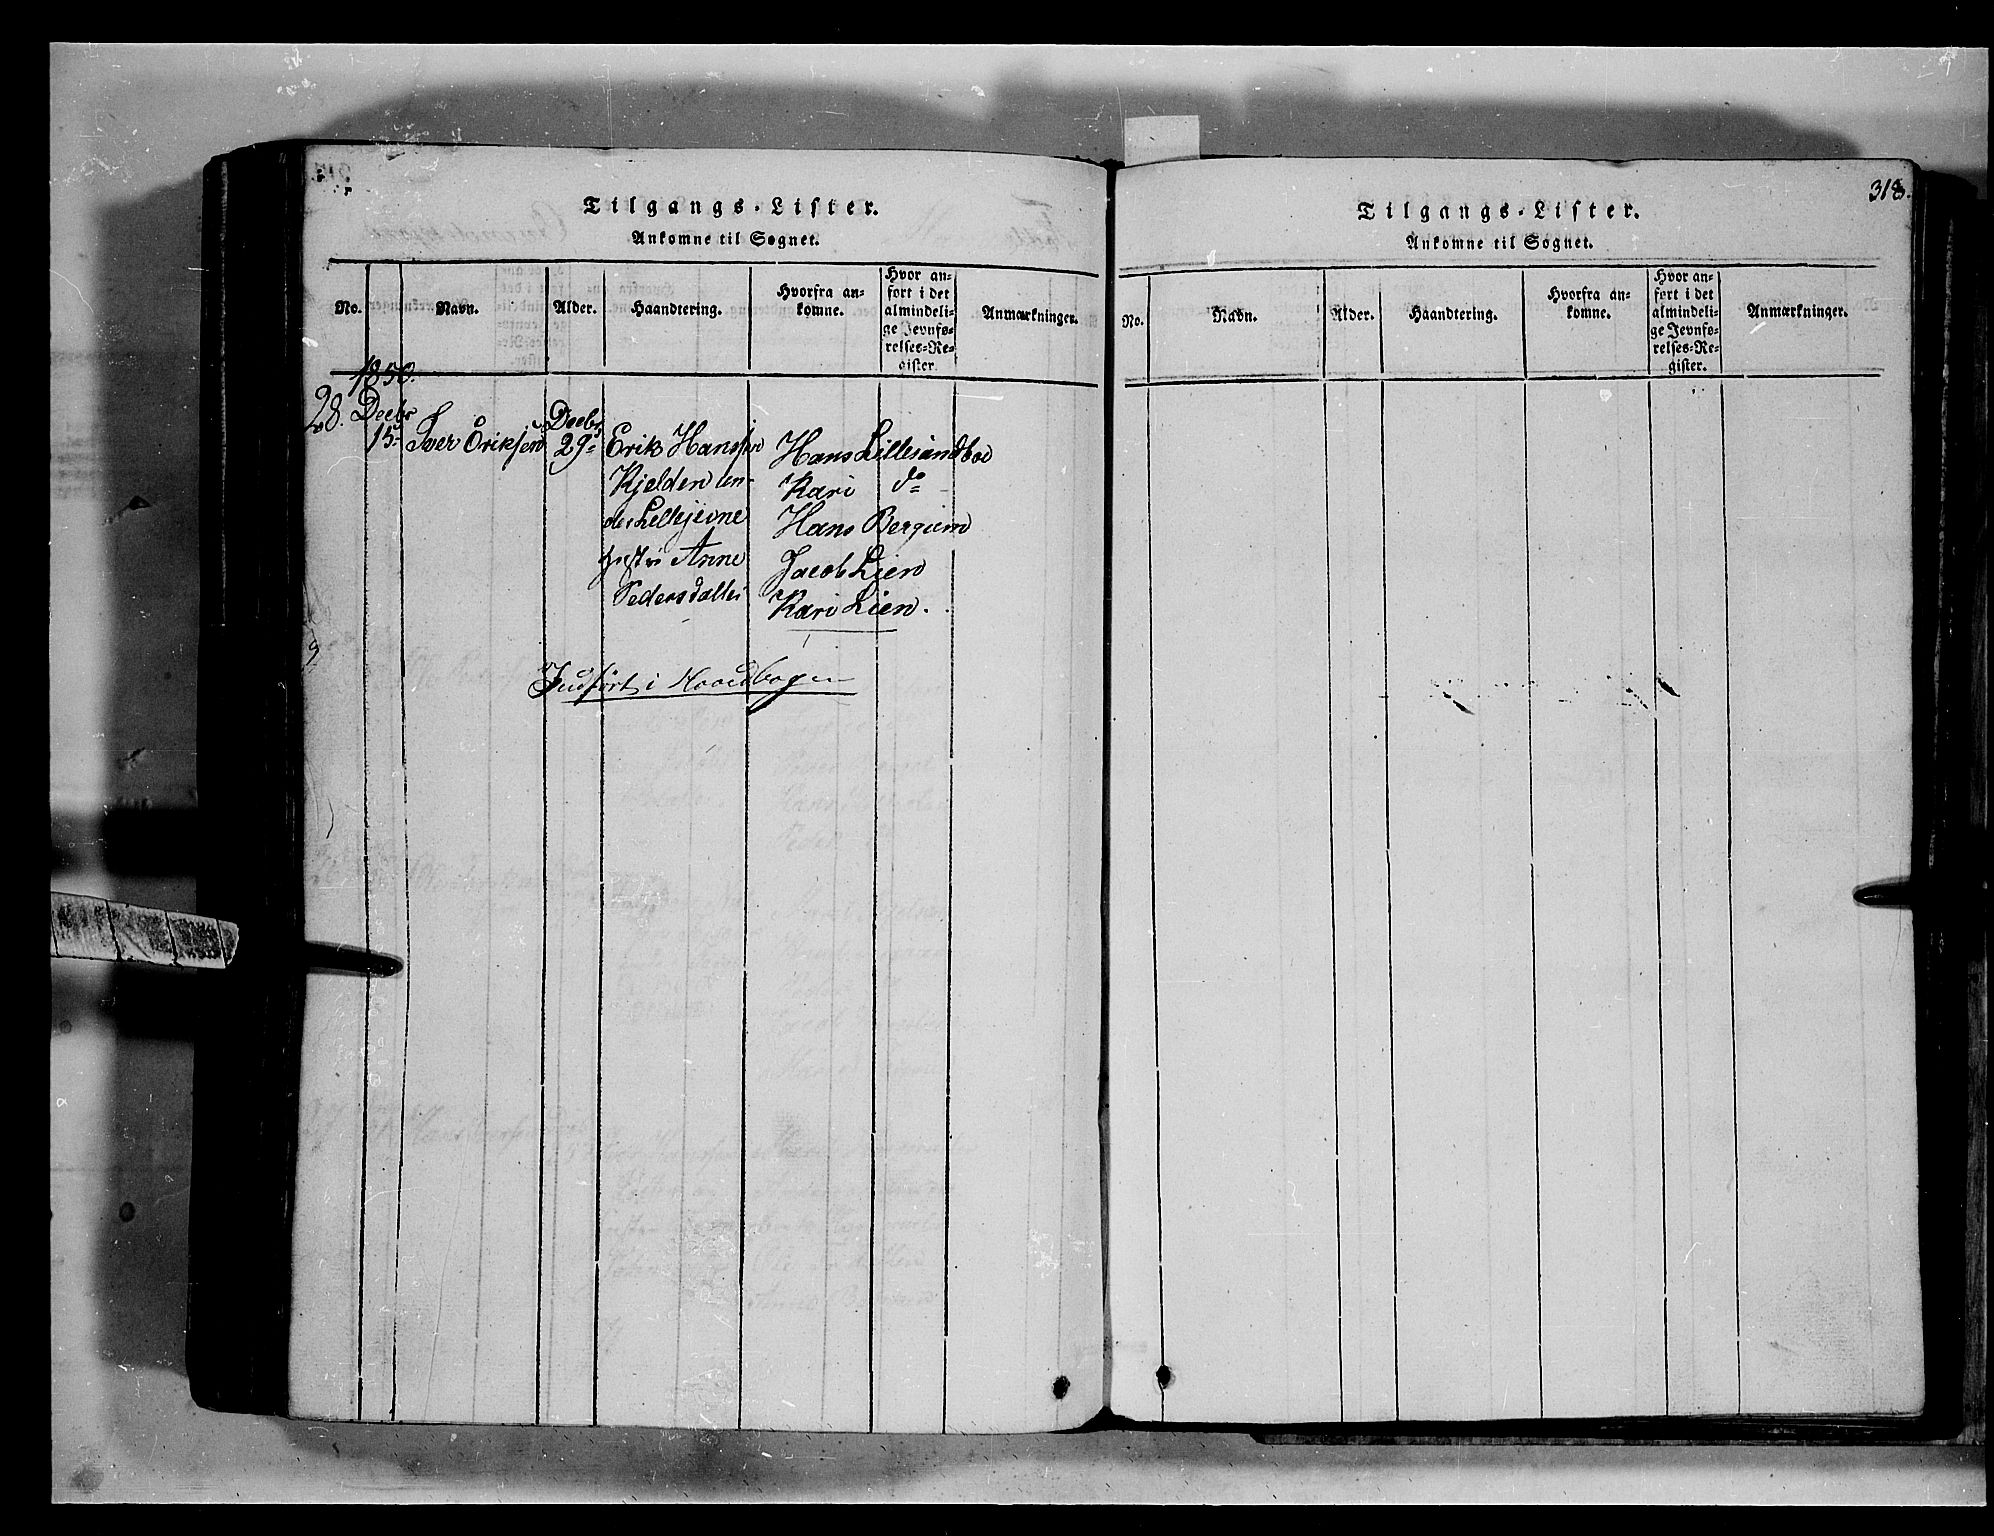 Tilgangs-Lister.
Ankomne til Sognet.
No.
Navn.
Alder.
Haandtering.
Hvorfra an-
komne.
Hvor an-
ført i det
almindeli-
ge Jevnfø-
relses-Re-
gister.
Anmærkninger.
1850.
28. Decbr
15 Iver Eriksen
Decbr
29
Erik Hansen
Kjelden
Anne
Hans Lillesandboe
Kari do
Hans Bergum
Jacob Lien
Kari Lien.
Indført i Hovedbogen
318.
Tilgangs-Lister.
Ankomne til Sognet.
No.
Navn.
Alder.
Haandtering.
Hvorfra an-
komne.
Hvor an-
ført i det
almindeli-
ge Jevnfø-
relses-Re-
gister.
Anmærkninger.